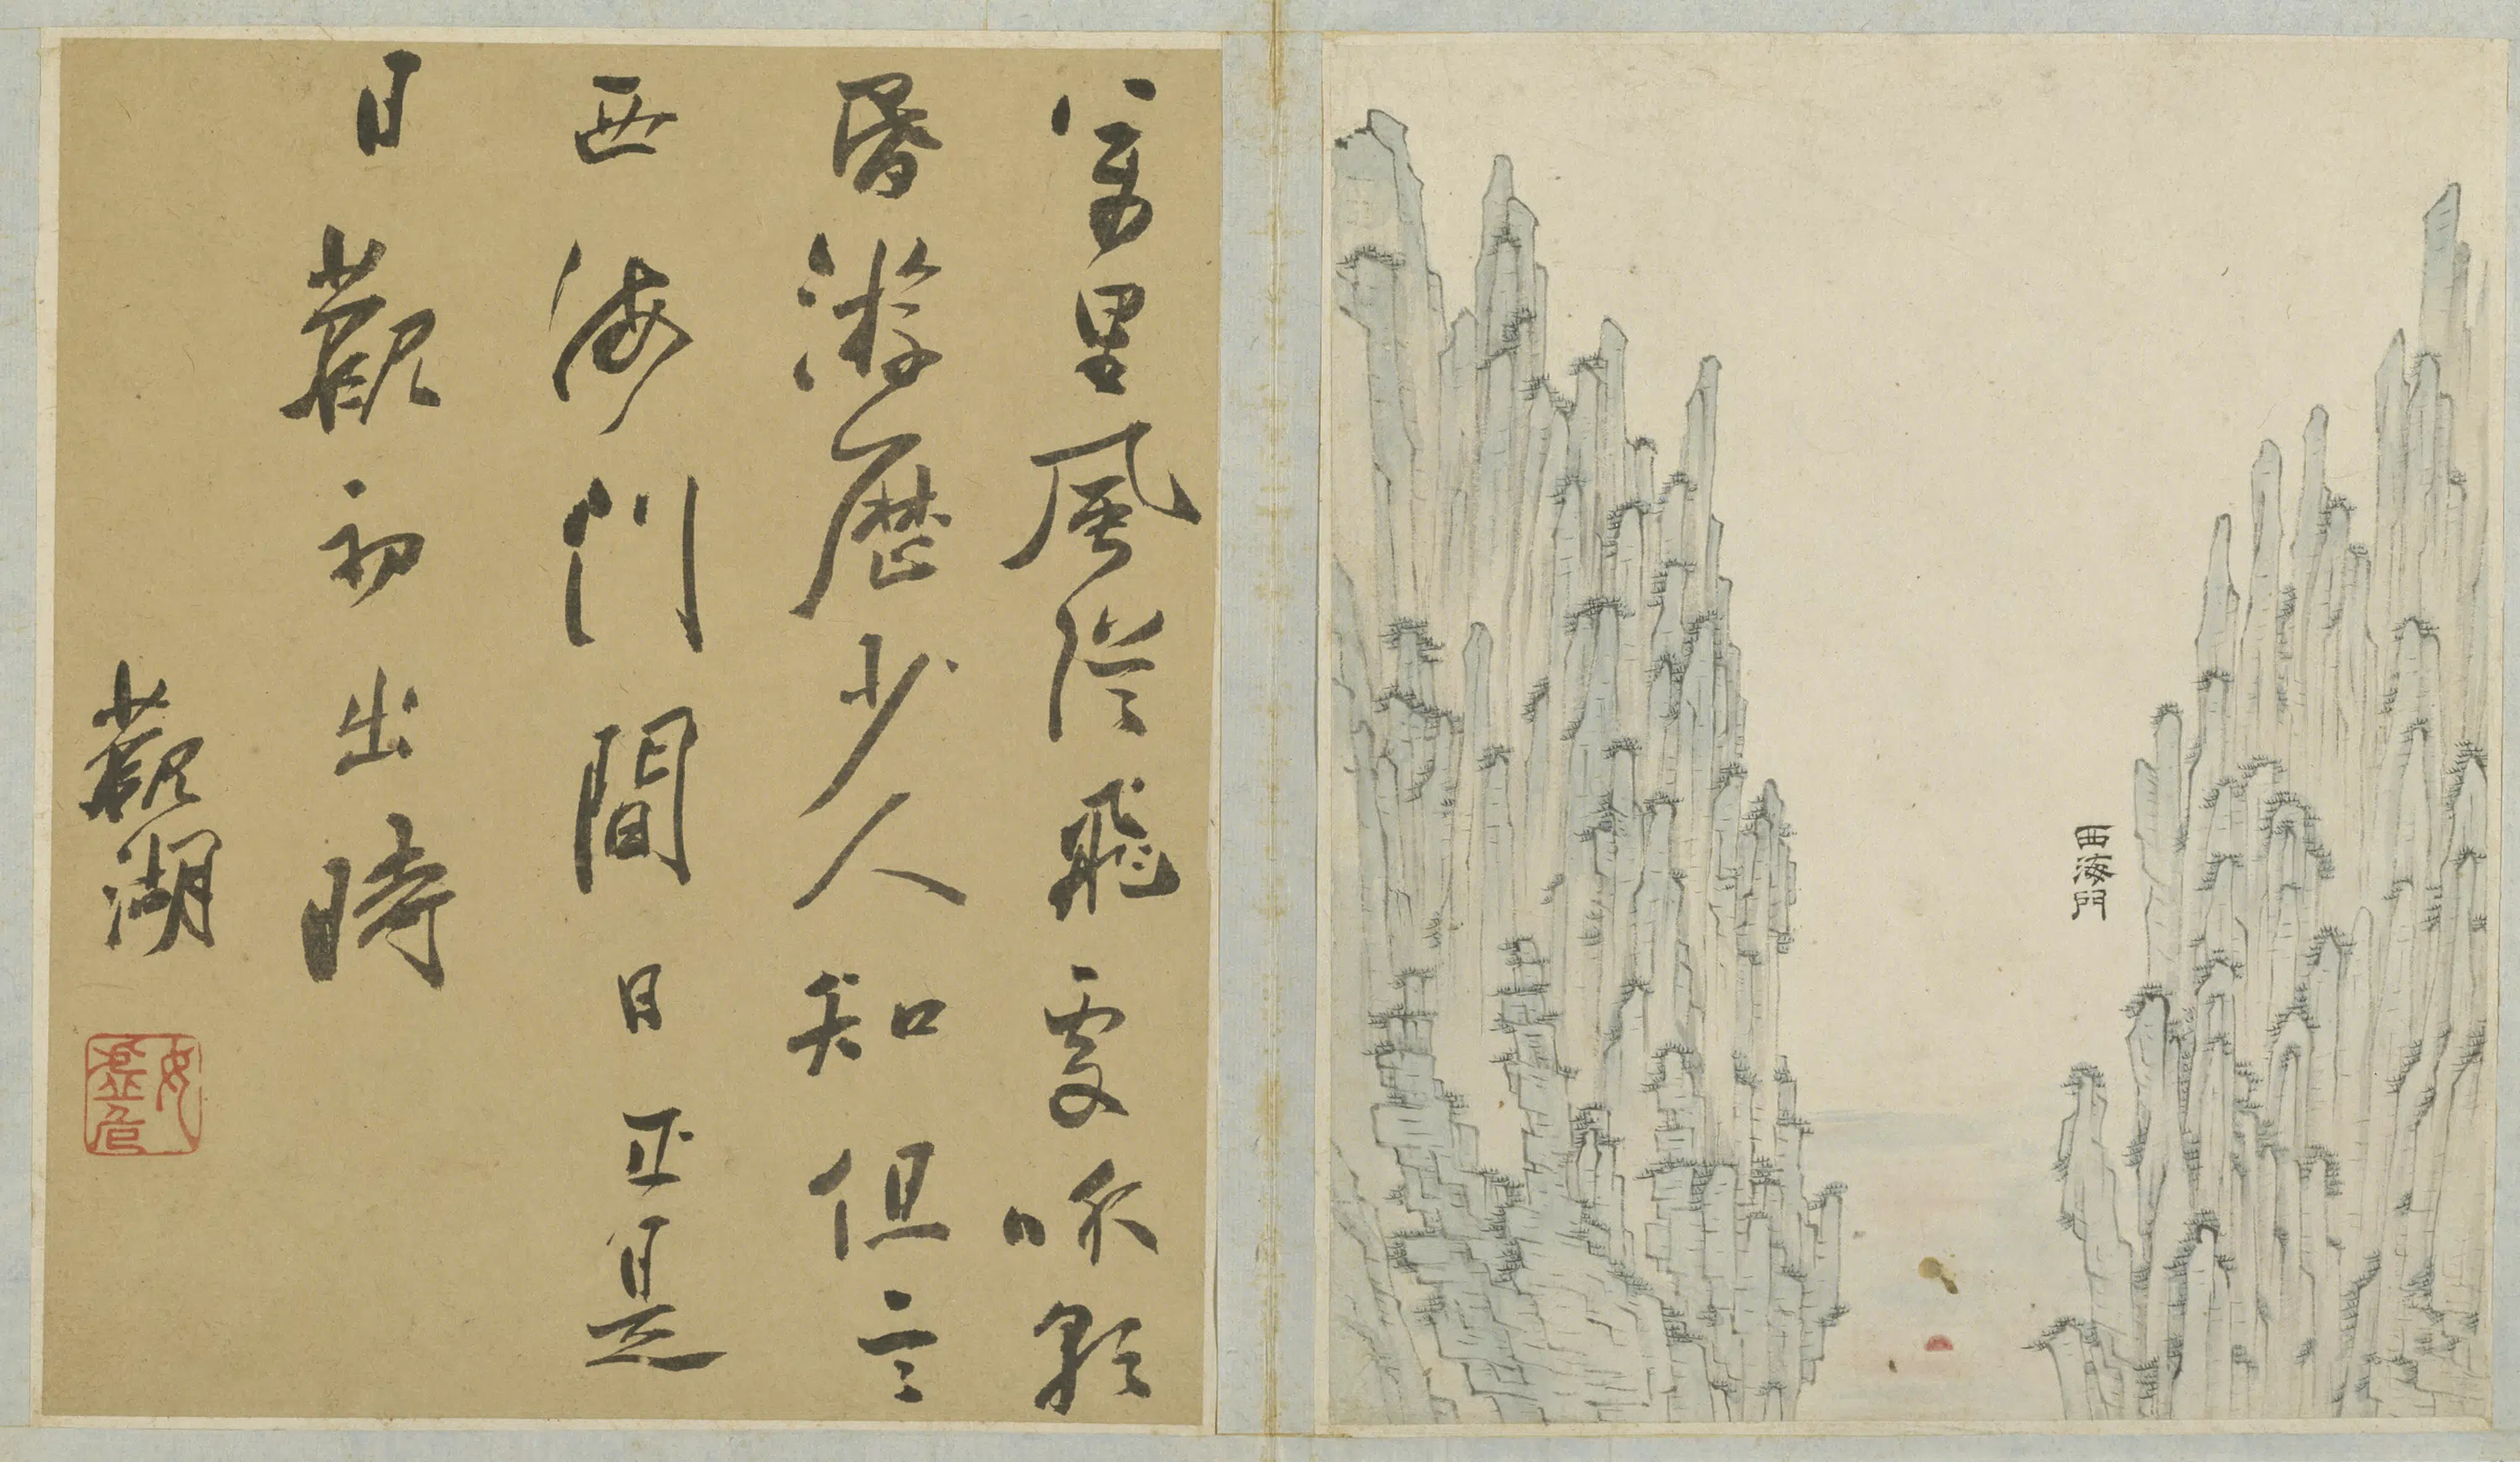 西海門
萬里風從飛處吹朝
昏游歷少人知但言
西海門間日正是
日觀初出時
觀湖